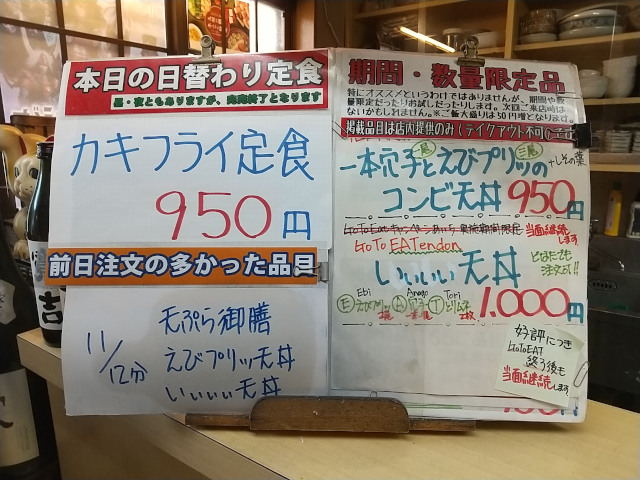 本日の日替わり定食
昼・夜ともありますが、売切終了となります
カキフライ定食
950円
前日注文の多かった品目
11/12分
天ぷら御膳
えびプリッツ天丼
いぃいぃ天丼
期間・数量限定品
特にオススメというわけではありませんが、期間や数
量限定だったりお試しだったりします。次回ご来店時は
ないかもしれません。※ご飯大盛りは50円増となります。
掲載品目は店内提供のみ(テイクアウト不可)
一本穴子とえびプリッツの
一尾 三尾 +しその葉
コンビ天丼 950円
当面継続します
GoTo EATendon
いぃいぃ天丼
どなたでも注文可!!
Ebi Anago Tori
1,000円
好評につき
GoToEAT
終了後も
当面継続します